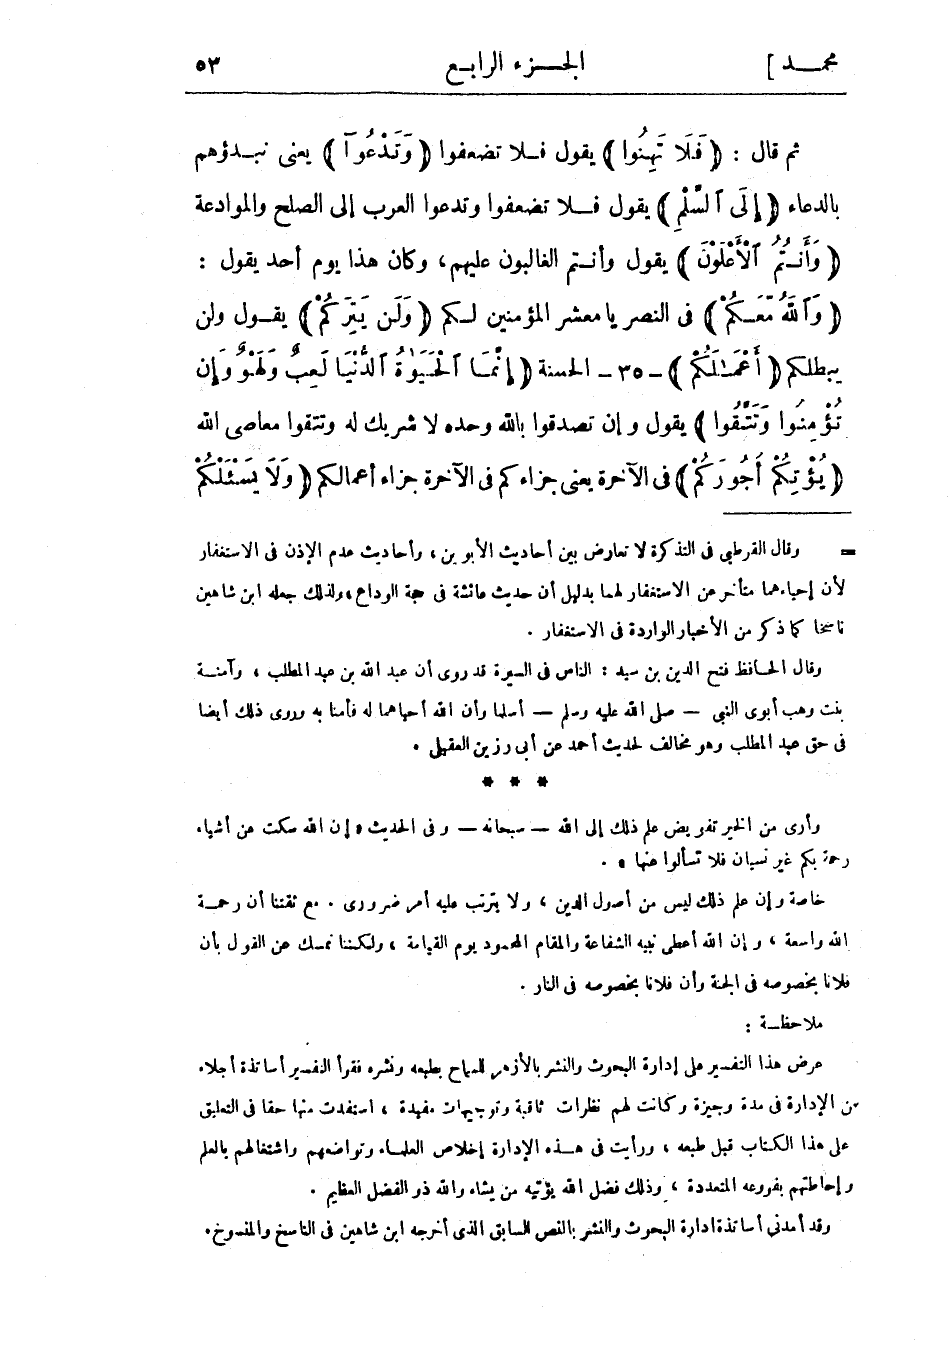 محمد ] الجزء الرابع ٥٣
ثم قال : ﴿ فَلَا تَهِنُوا ﴾ يقول فلا تضعفوا ﴿ وَتَدْعُوٓا ﴾ يعنى نبدؤهم
بالدعاء ﴿ إِلَى ٱلسَّلْمِ ﴾ يقول فلا تضعفوا وتدعوا العرب إلى الصلح والموادعة
﴿ وَأَنتُمُ ٱلْأَعْلَوْنَ ﴾ يقول وأنتم الغالبون عليهم، وكان هذا يوم أحد يقول :
﴿ وَٱللَّهُ مَعَكُمْ ﴾ فى النصر يا معشر المؤمنين لكم ﴿ وَلَن يَتِرَكُمْ ﴾ يقول ولن
يبطلكم ﴿ أَعْمَـٰلَكُمْ ﴾ - ٣٥ - الحسنة ﴿ إِنَّمَا ٱلْحَيَوٰةُ ٱلدُّنْيَا لَعِبٌ وَلَهْوٌ وَإِن
تُؤْمِنُوا وَتَتَّقُوا ﴾ يقول وإن تصدقوا بالله وحده لا شريك له وتتقوا معاصى الله
﴿ يُؤْتِكُمْ أُجُورَكُمْ ﴾ فى الآخرة يعنى جزاءكم فى الآخرة جزاء أعمالكم ﴿ وَلَا يَسْـَٔلْكُمْ
= وقال القرطبى فى التذكرة لا تعارض بين أحاديث الأبوين، وأحاديث عدم الإذن فى الاستغفار
لأن إحياءهما متأخر عن الاستغفار لهما بدليل أن حديث عائشة فى حجة الوداع، ولذلك جعله ابن شاهين
ناسخا كما ذكر من الأخبار الواردة فى الاستغفار .
وقال الحافظ فتح الدين بن سيد : الناس فى السيرة قد روى أن عبد الله بن عبد المطلب ، وآمنة
بنت وهب أبوى النبي — صلى الله عليه وسلم — أسلما وأن الله أحياهما له فآمنا به وروى ذلك أيضا
فى حق عبد المطلب وهو مخالف لحديث أحمد عن أبى رزين العقيلى .
* * *
وأرى من الخير تفويض علم ذلك إلى الله — سبحانه — وفى الحديث « إن الله سكت عن أشياء
رحمة بكم غير نسيان فلا تسألوا عنها » .
خاصة وإن علم ذلك ليس من أصول الدين ، ولا يترتب عليه أمر ضرورى . مع ثقتنا أن رحمة
الله واسعة ، وإن الله أعطى نبيه الشفاعة والمقام المحمود يوم القيامة ، ولكننا نمسك عن القول بأن
فلانا بخصوصه فى الجنة وأن فلانا بخصوصه فى النار .
ملاحظة :
عرض هذا التفسير على إدارة البحوث والنشر بالأزهر للسماح بطبعه ونشره فقرأ التفسير أساتذة أجلاء
من الإدارة فى مدة وجيزة وكانت لهم نظرات ثاقبة وتوجيهات مفيدة ، استفدت منها حقا فى التعليق
على هذا الكتاب قبل طبعه ، ورأيت فى هذه الإدارة إخلاص العلماء وتواضعهم واشتغالهم بالعلم
وإحاطتهم بفروعه المتعددة ، وذلك فضل الله يؤتيه من يشاء والله ذو الفضل العظيم .
وقد أمدنى أساتذة ادارة البحوث والنشر بالنص السابق الذى أخرجه ابن شاهين فى الناسخ والمنسوخ .